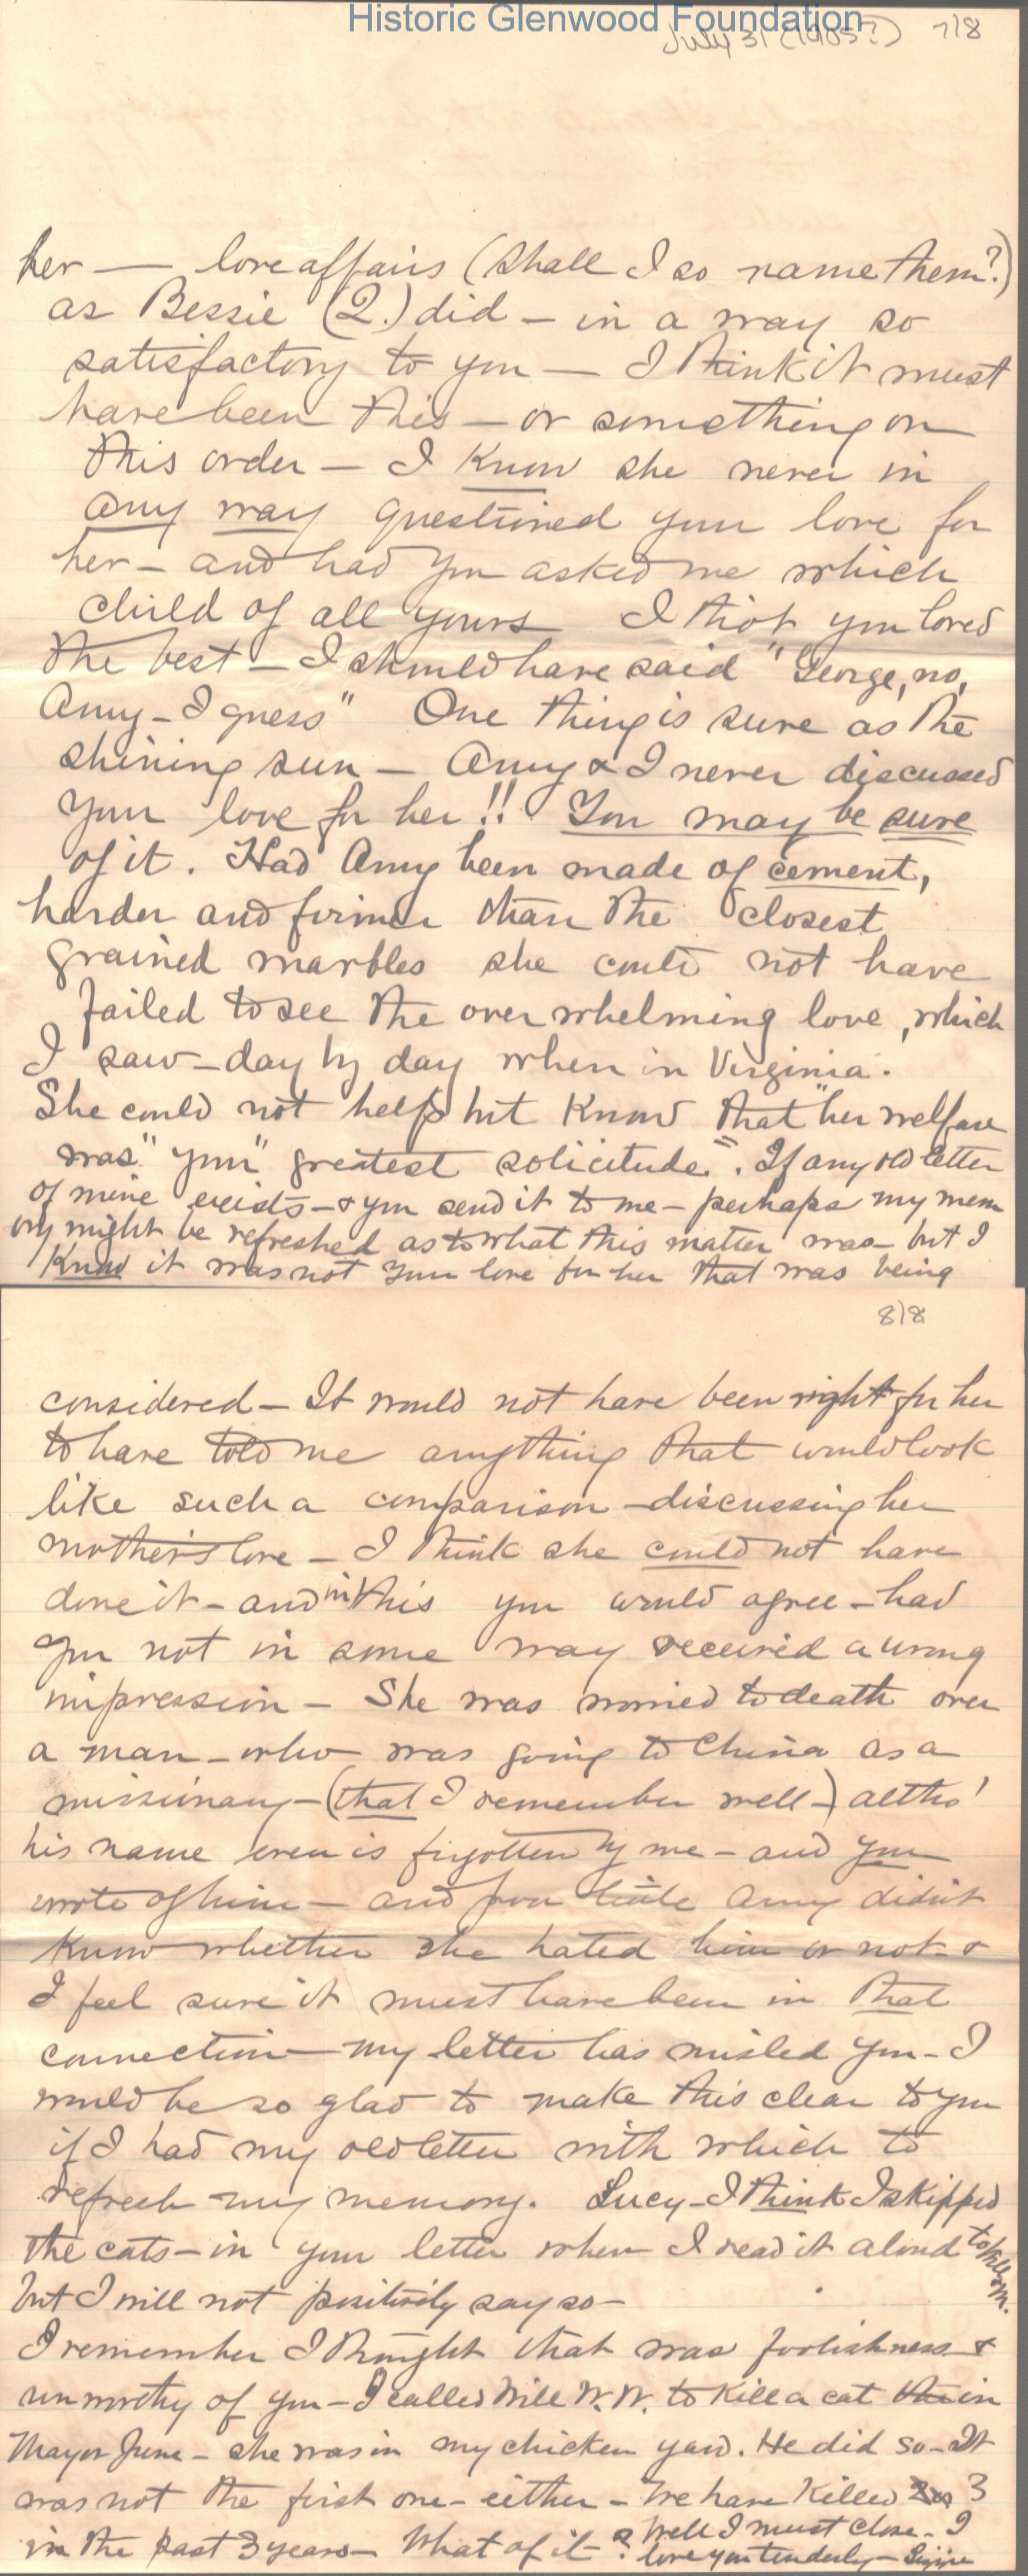 Historic Glenwood Foundation
July 31 (1905?) 7/8
her — love affairs (shall I so name them?)
as Bessie (2.) did – in a way so
satisfactory to you — I think it must
have been this – or something on
this order – I know she never in
any way questioned your love for
her – and had you asked me which
child of all yours I tho't you loved
the best – I should have said "George, no,
Amy – I guess" One thing is sure as the
shining sun – Amy & I never discussed
your love for her!! You may be sure
of it. Had Amy been made of cement,
harder and firmer than the closest
grained marbles she could not have
failed to see the overwhelming love, which
I saw – day by day when in Virginia.
She could not help but know that "her welfare
was" your" greatest solicitude". If any old letter
of mine exists – & you send it to me – perhaps my mem
ory might be refreshed as to what this matter was – but I
know it was not your love for her that was being
8/8
considered – It would not have been right for her
to have told me anything that would look
like such a comparison – discussing her
mother's love – I think she could not have
done it – and in this you would agree – had
you not in some way received a wrong
impression – She was worried to death over
a man – who was going to China as a
missionary – (that I remember well –) altho'
his name even is forgotten by me – and you
wrote of him – and poor little Amy didn't
know whether she hated him or not – &
I feel sure it must have been in that
connection – my letter has misled you – I
would be so glad to make this clear to you
if I had my old letter with which to
refresh my memory. Lucy – I think I skipped
the cats – in your letter when I read it aloud to
but I will not positively say so –
I remember I thought that was foolishness &
unworthy of you – I called Will W. W. to kill a cat in
May or June – she was in my chicken yard. He did so – It
was not the first one – either – We have killed 3
in the past 3 years – What of it – ? Well I must close – I
love you tenderly – Lizzie